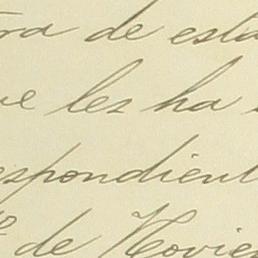 ra de esta
ue les ha
espondient
de Novie